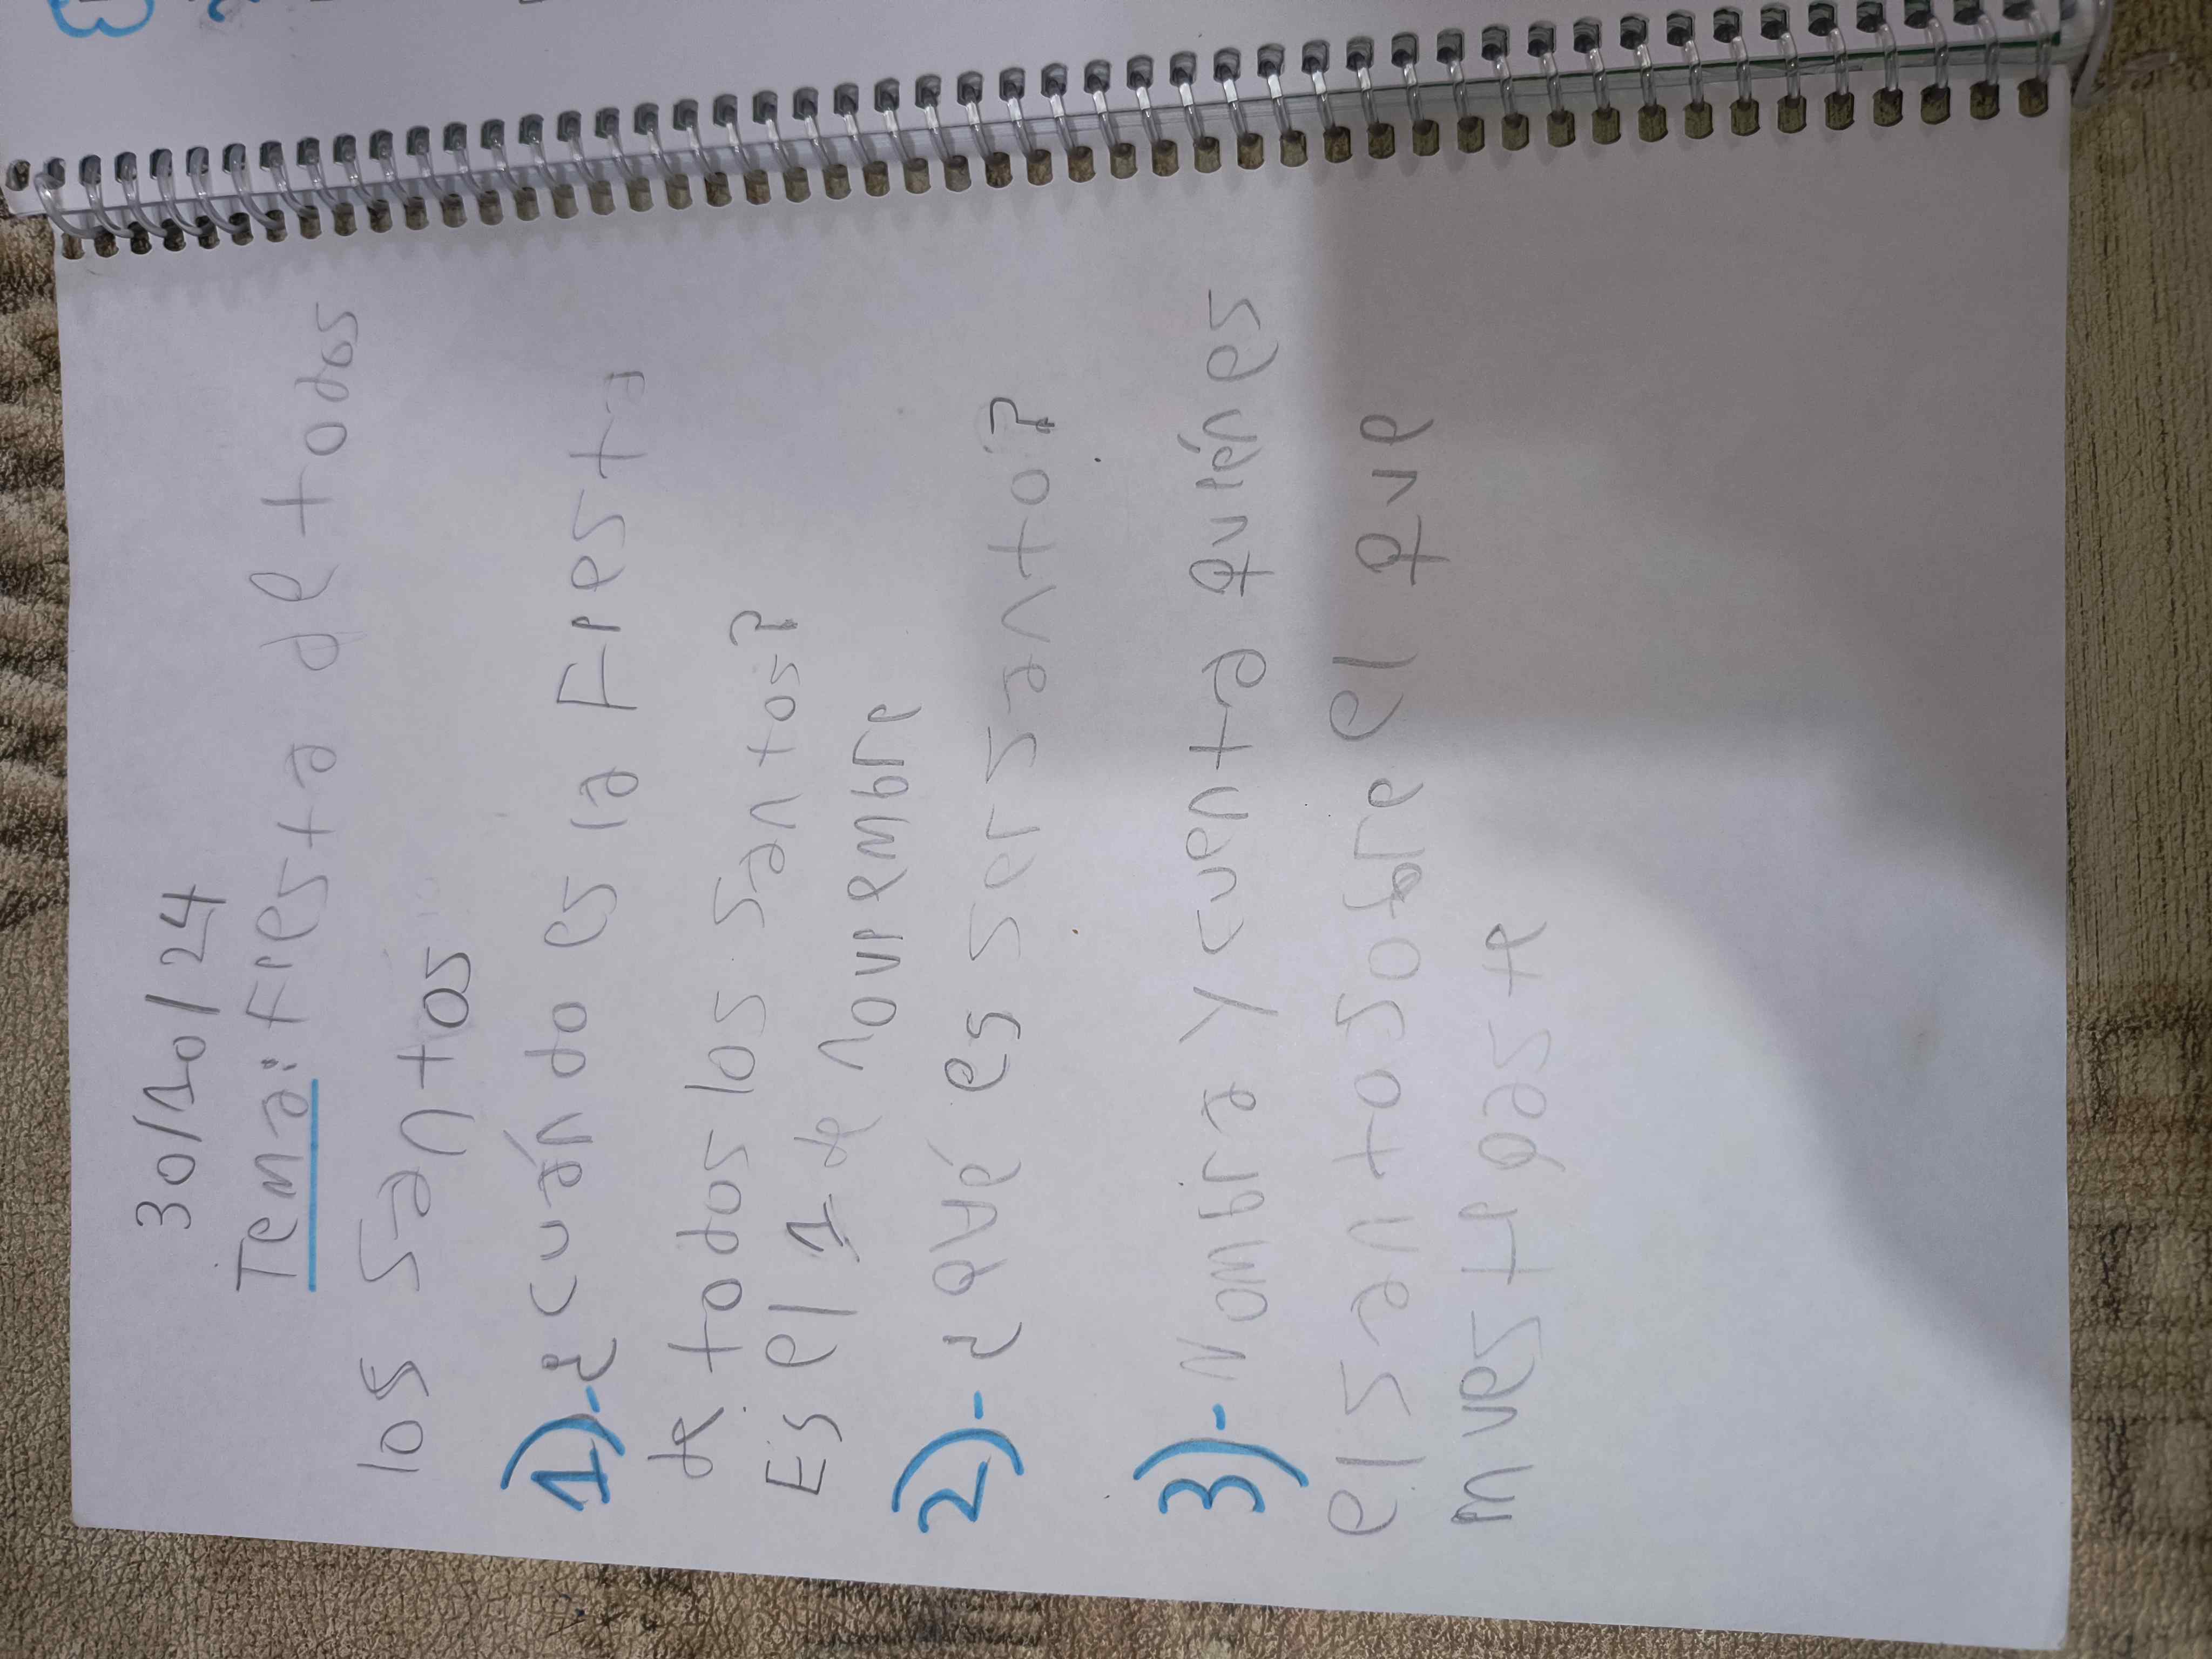 30/10/24
Tema: Fiesta de todos
los santos
1)- ¿cuándo es la Fiesta
de todos los santos?
Es el 1 de noviembre
2)- ¿Qué es ser santo?
3)- Nombra y cuenta quién es
el santo sobre el que
investigaste